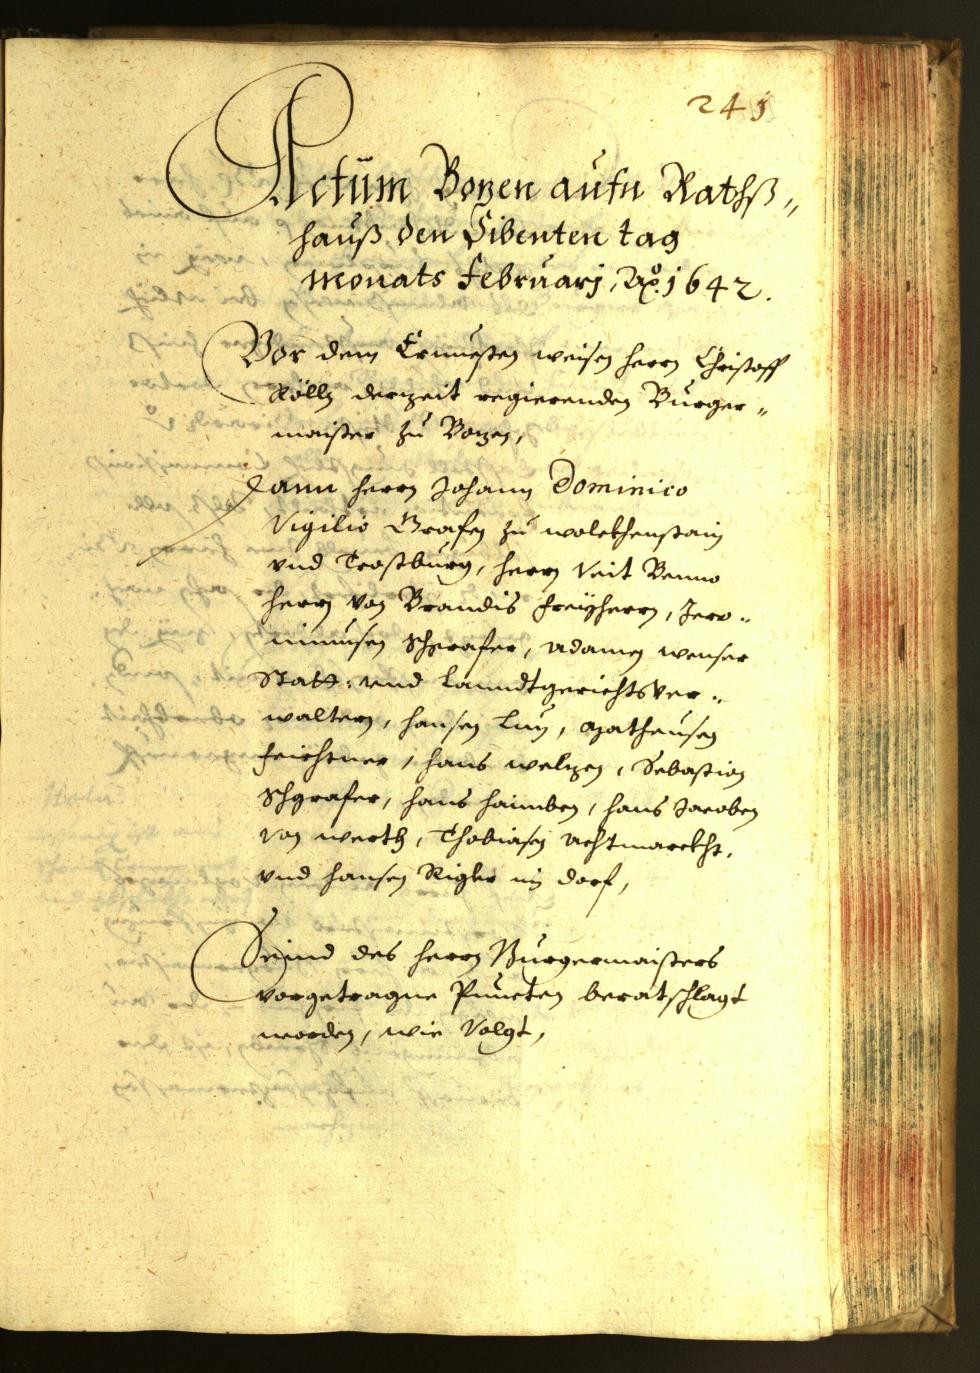 241
Actum Bozen aufn Rathß„
hauß den Sibenten tag
monats Februarj, Aõ. 1642.
Vor dem Ernuesten weisen herrn Christoff
Röllz derzeit regierenden Burger„
maister zu Bozen,
Dann herrn Johann Dominico
Vigilio Grafen zu wolckhenstain
vnd Trostburg, herrn Veit Benno
herrn von Brandis Freÿherrn, Jero„
nimusen Schgrafer, Adamen wenser
Statt: vnd Lanndtgerichtsver„
waltern, hansen Luz, Matheusen
Feichtner, hans welzen, Sebastian
Schgrafer, hans haimben, hans Jacoben
von werth, Thobiasen Achtmarckht,
vnd hansen Rigler im dorf,
Seind des herrn Burgermaisters
vorgetragne Puncten beratschlagt
worden, wie Volgt,